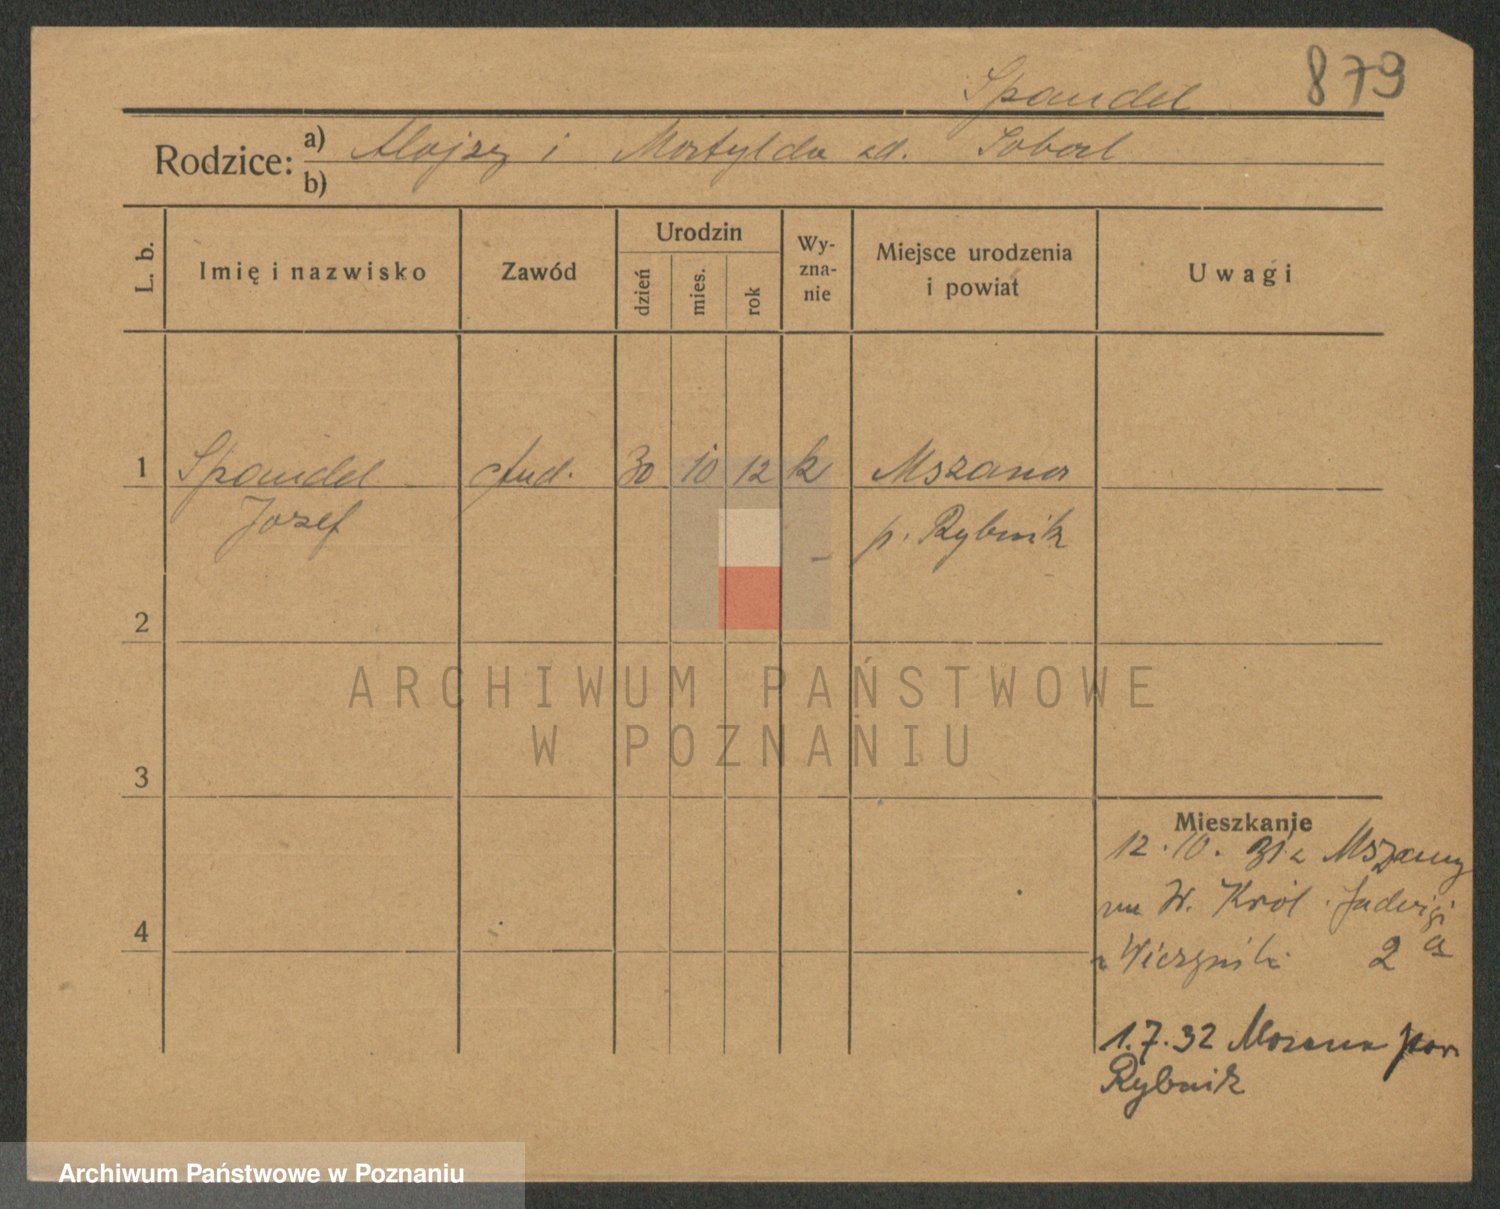 879
Spandel
Rodzice: a) Alojzy i Matylda zd. Sobal
b)
L. b. Imię i nazwisko Zawód Urodzin dzień mies. rok Wyzna-nie Miejsce urodzenia i powiat Uwagi
1 Spandel stud. 30 10 12 k Mszana
Józef p. Rybnik
2
ARCHIWUM PAŃSTWOWE
W POZNANIU
3
Mieszkanie
12.10.31 z Mszany
na W. Król. Jadwigi
4
2a
1.7.32 Mszana pow
Rybnik
Archiwum Państwowe w Poznaniu